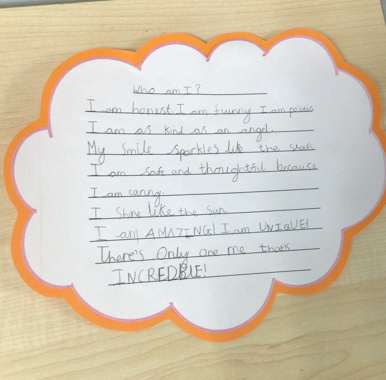 Who am I?
I am honest. I am funny I am polite
I am as kind as an angel.
My Smile sparkles like the stars
I am safe and thoughtful because
I am caring.
I Shine like the Sun
I am AMAZING! I am UNIQUE!
There's Only one me thats
INCREDIBLE!